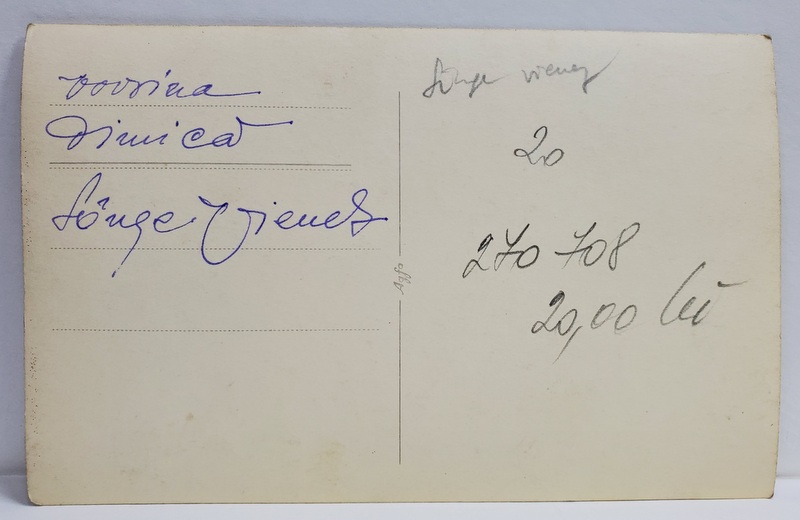 Dimică
Sânge Vienez
Sânge vienez
20
270 708
20,00 lei
Agfa